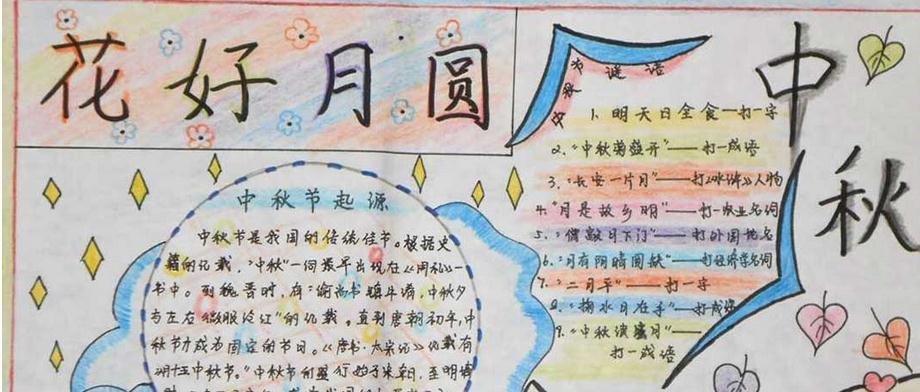 花好月圆
中秋
中秋节谜语
1、明天日全食一打一字
2、"中秋菊盛开"——打一成语
3、"长安一片月"——打《水浒》人物
4、"月是故乡明"——打一业名词
5、"僧敲月下门"——打外国地名
6、"月有阴晴圆缺"——打经济学名词
7、"二月平"——打一字
8、"掬水月在手"——打成语
9、"中秋读盛月"——
打一成语
中秋节起源
中秋节是我国的传统佳节。根据史
籍的记载,"中秋"一词最早出现在《周礼》一
书中。到魏晋时,有"谕尚书镇牛渚,中秋夕
与左右微服泛江"的记载。直到唐朝初年,中
秋节才成为固定的节日。《唐书·太宗记》记载有
中秋节。"中秋节的盛行始于宋朝,至明清